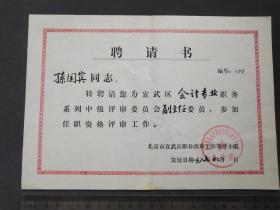 聘请书
编号:
孙国宾同志:
特聘请您为宣武区会计专业职务
系列中级评审委员会副主任委员,参加
任职资格评审工作。
北京市宣武区职称改革工作领导小组
发证日期